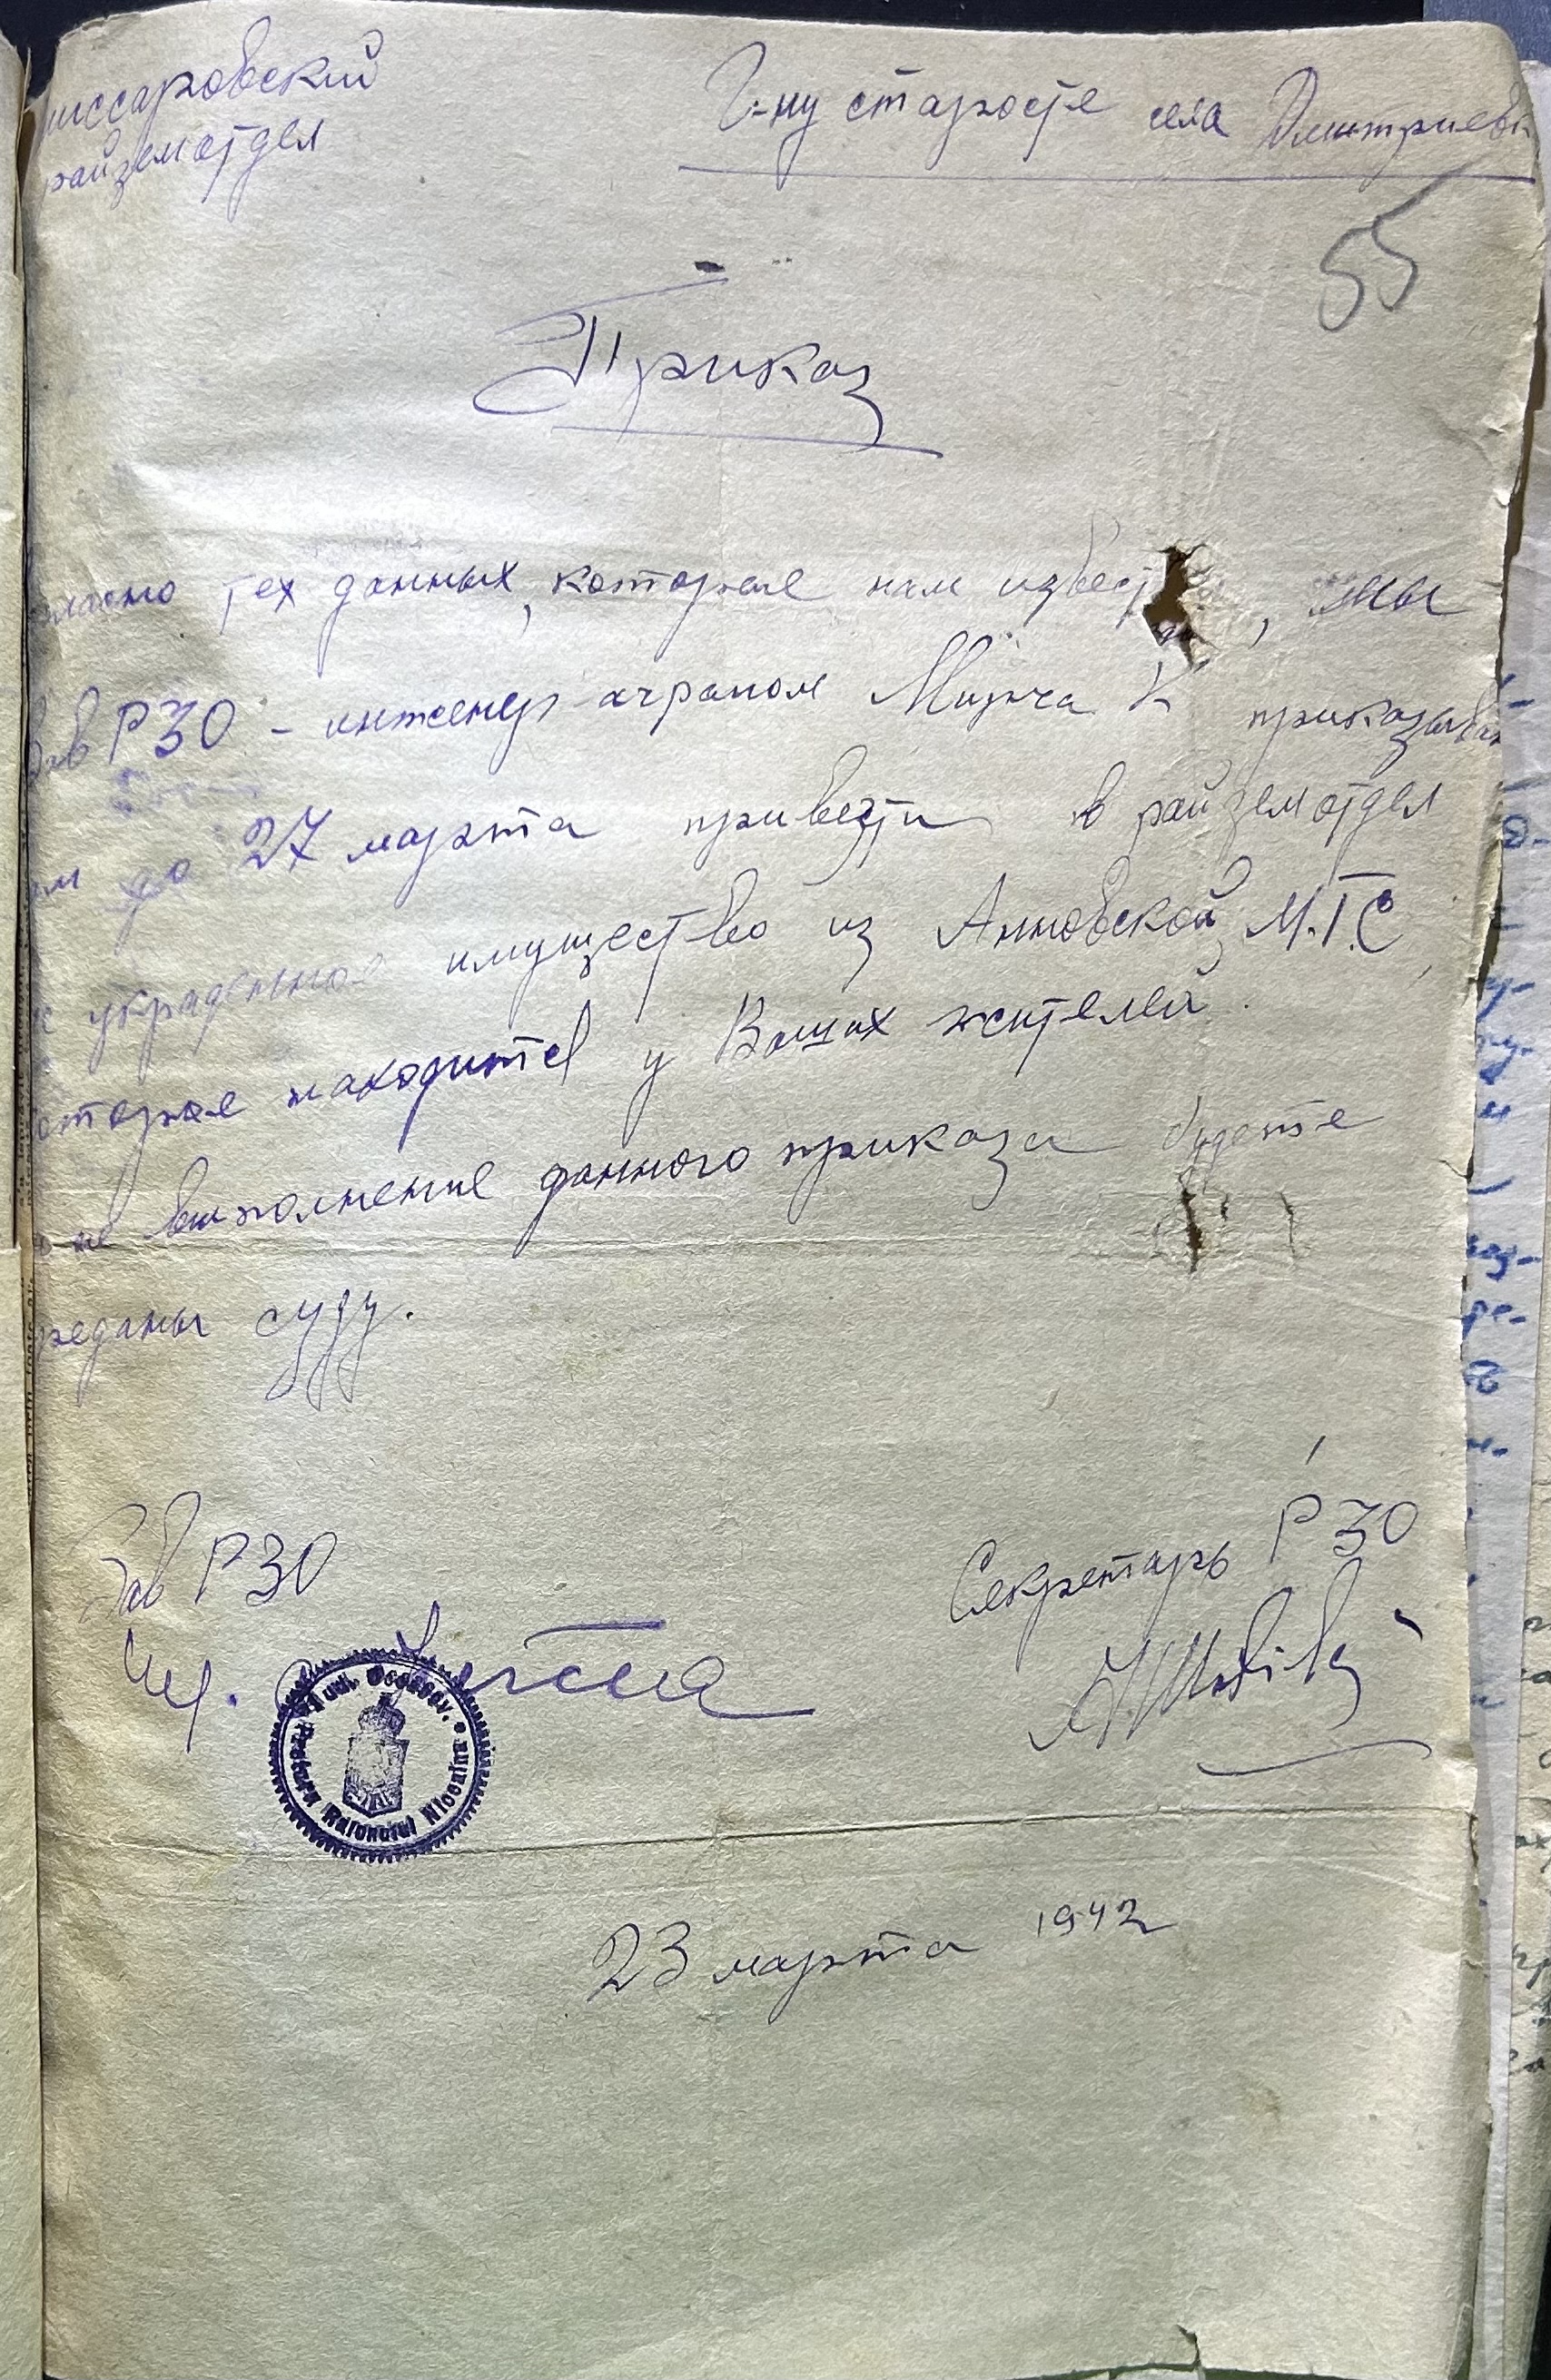 миссаровский
райземотдел
Г-ну старосте села Дмитриевк
55
Приказ
гласно тех данных, которые нам извест , мы
Зав РЗО - инженер агроном Мирча К приказывае
м до 27 марта привезти в райземотдел
украденное имущество из Анновской М.Т.С,
оторое находится у Ваших жителей.
не выполнение данного приказа будете
реданы суду.
Зав РЗО
Секретарь РЗО
Инж.
Jud. Oceacov. Pretura Raionului Nicolina
23 марта 1942